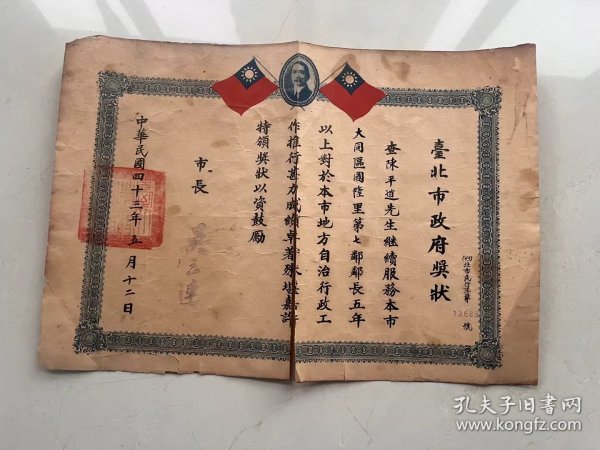 臺北市政府獎狀
北市民行字第
13689
號
查陳早道先生繼續服務本市
大同區國隆里第七鄰鄰長五年
以上對於本市地方自治行政工
作推行甚力成績卓著殊堪嘉許
特頒獎狀以資鼓勵
市長
吳三連
中華民國四十三年五月十二日
孔夫子旧书网
www.kongfz.com